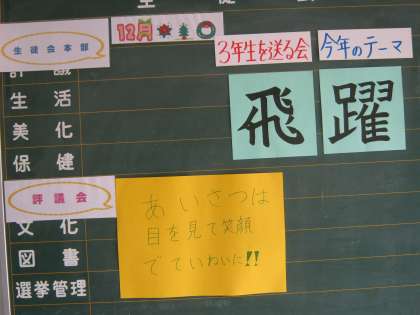 12月
生徒会本部
3年生を送る会
今年のテーマ
飛
躍
生活
美化
保健
評議会
あいさつは
目を見て笑顔
でていねいに!!
文化
図書
選挙管理